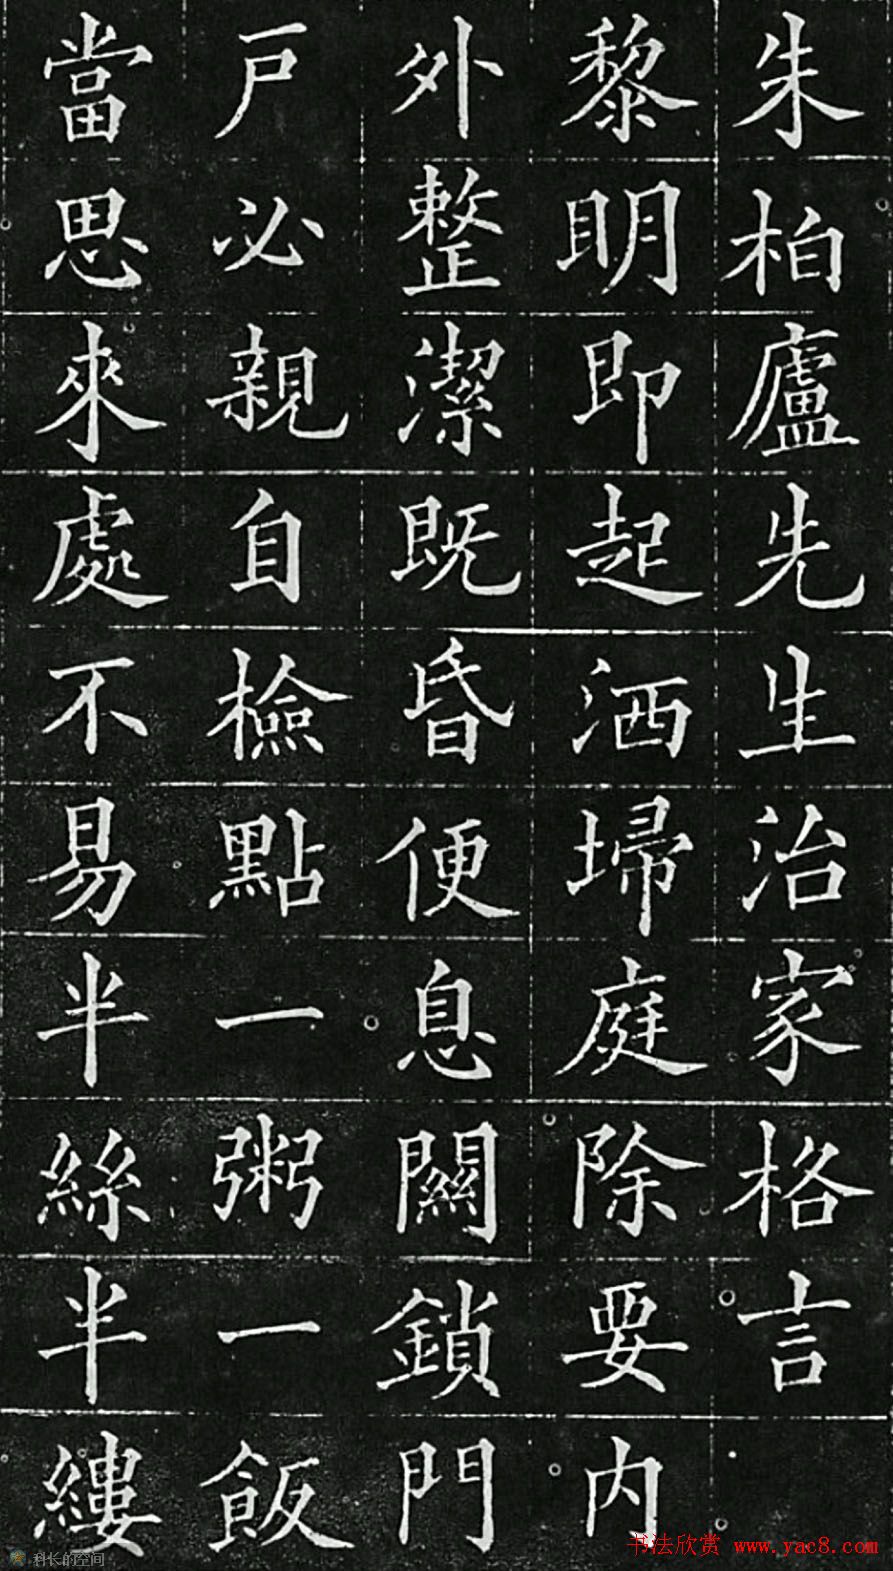 朱柏廬先生治家格言
黎明即起洒埽庭除要内
外整潔既昏便息關鎖門
戶必親自檢點一粥一飯
當思來處不易半絲半縷
科长的空间
书法欣赏 www.yac8.com